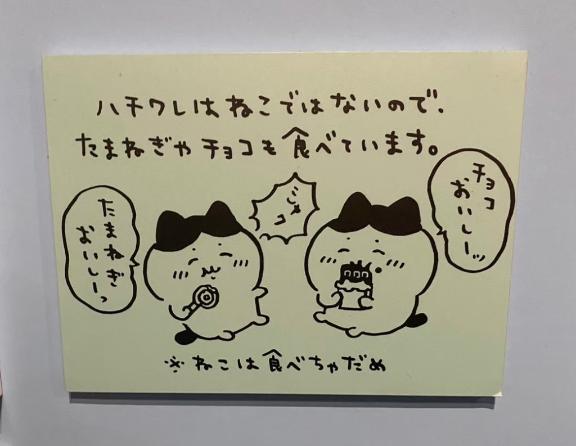 ハチワレはねこではないので、
たまねぎやチョコも食べています。
チョコ
おいしーッ
じゃコ
たまねぎ
おいしーっ
※ねこは食べちゃだめ